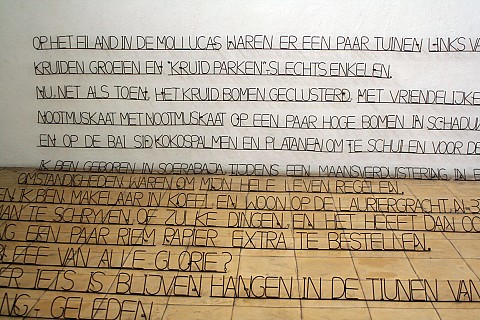 OP HET EILAND IN DE MOLLUCAS WAREN ER EEN PAAR TUINEN LINKS VA
KRUIDEN GROEIEN EN "KRUID PARKEN". SLECHTS ENKELEN.
NU, NET ALS TOEN, HET KRUID, BOMEN GECLUSTERD, MET VRIENDELIJKE
NOOTMUSKAAT MET NOOTMUSKAAT OP EEN PAAR HOGE BOMEN IN SCHADUW
EN OP DE BAL SID KOKOSPALMEN EN PLATANEN OM TE SCHUILEN VOOR DE
IK BEN GEBOREN IN SOERABAJA, TIJDENS EEN MAANSVERDUISTERING IN E
OMSTANDIGHEDEN WAREN OM MIJN HELE LEVEN REGELEN.
EN IK BEN MAKELAAR IN KOFFI, EN WOON OP DE LAURIERGRACHT, N-3
TE SCHRYVEN OF ZULKE DINGEN, EN HET HEEFT DAN OO
EEN PAAR RIEM PAPIER EXTRA TE BESTELLEN.
VAN ALVE GLORIE?
ER IETS IS BLIJVEN HANGEN IN DE TIUNEN VAN
GELEDEN